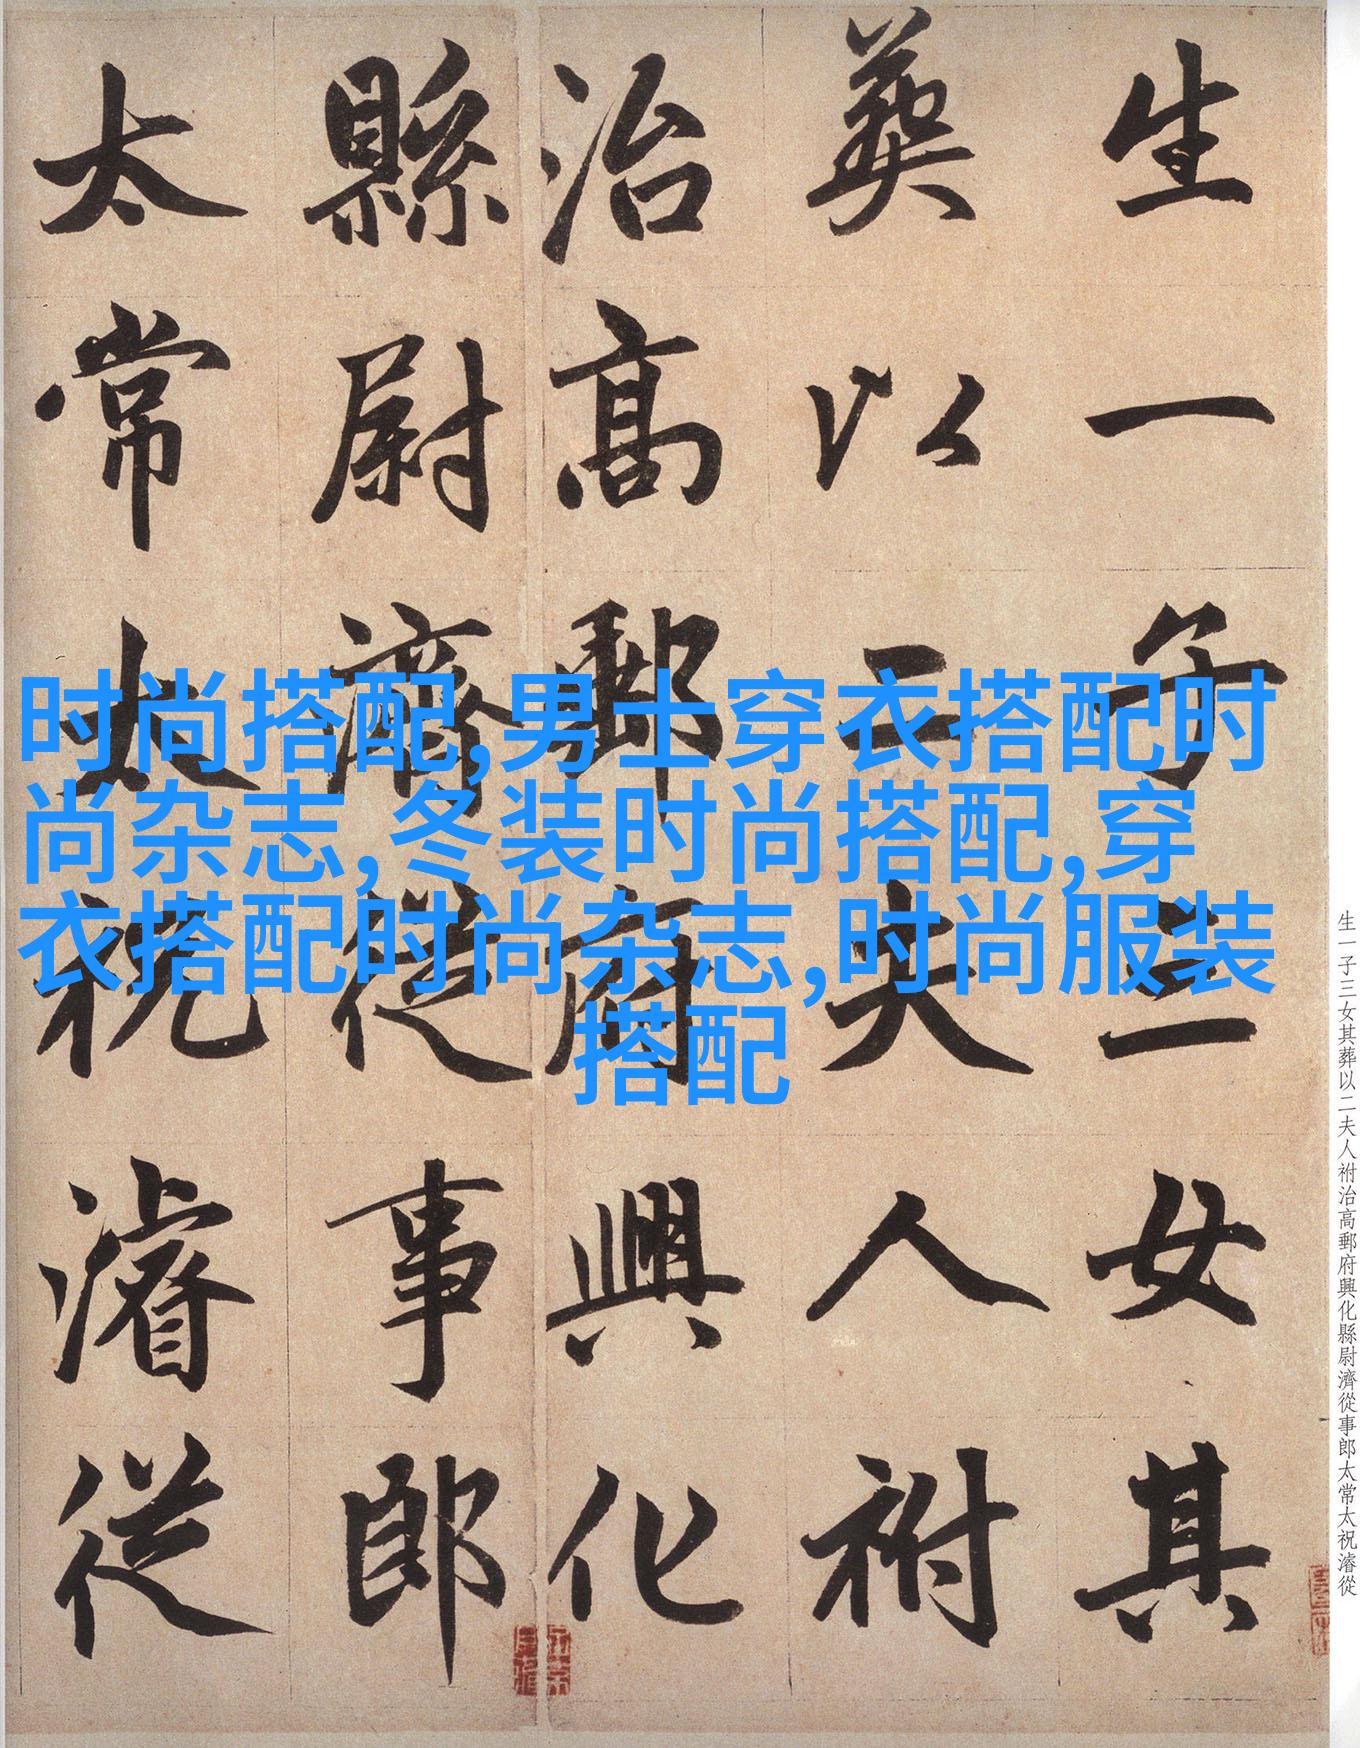 生一子三女其
葬以二夫人祔
治高郵府興化
縣尉濟從事郎
太常太祝濬從
时尚搭配,男士穿衣搭配时
尚杂志,冬装时尚搭配,穿
衣搭配时尚杂志,时尚服装
搭配
生一子三女其葬以二夫人祔治高郵府興化縣尉濟從事郎太常太祝濬從